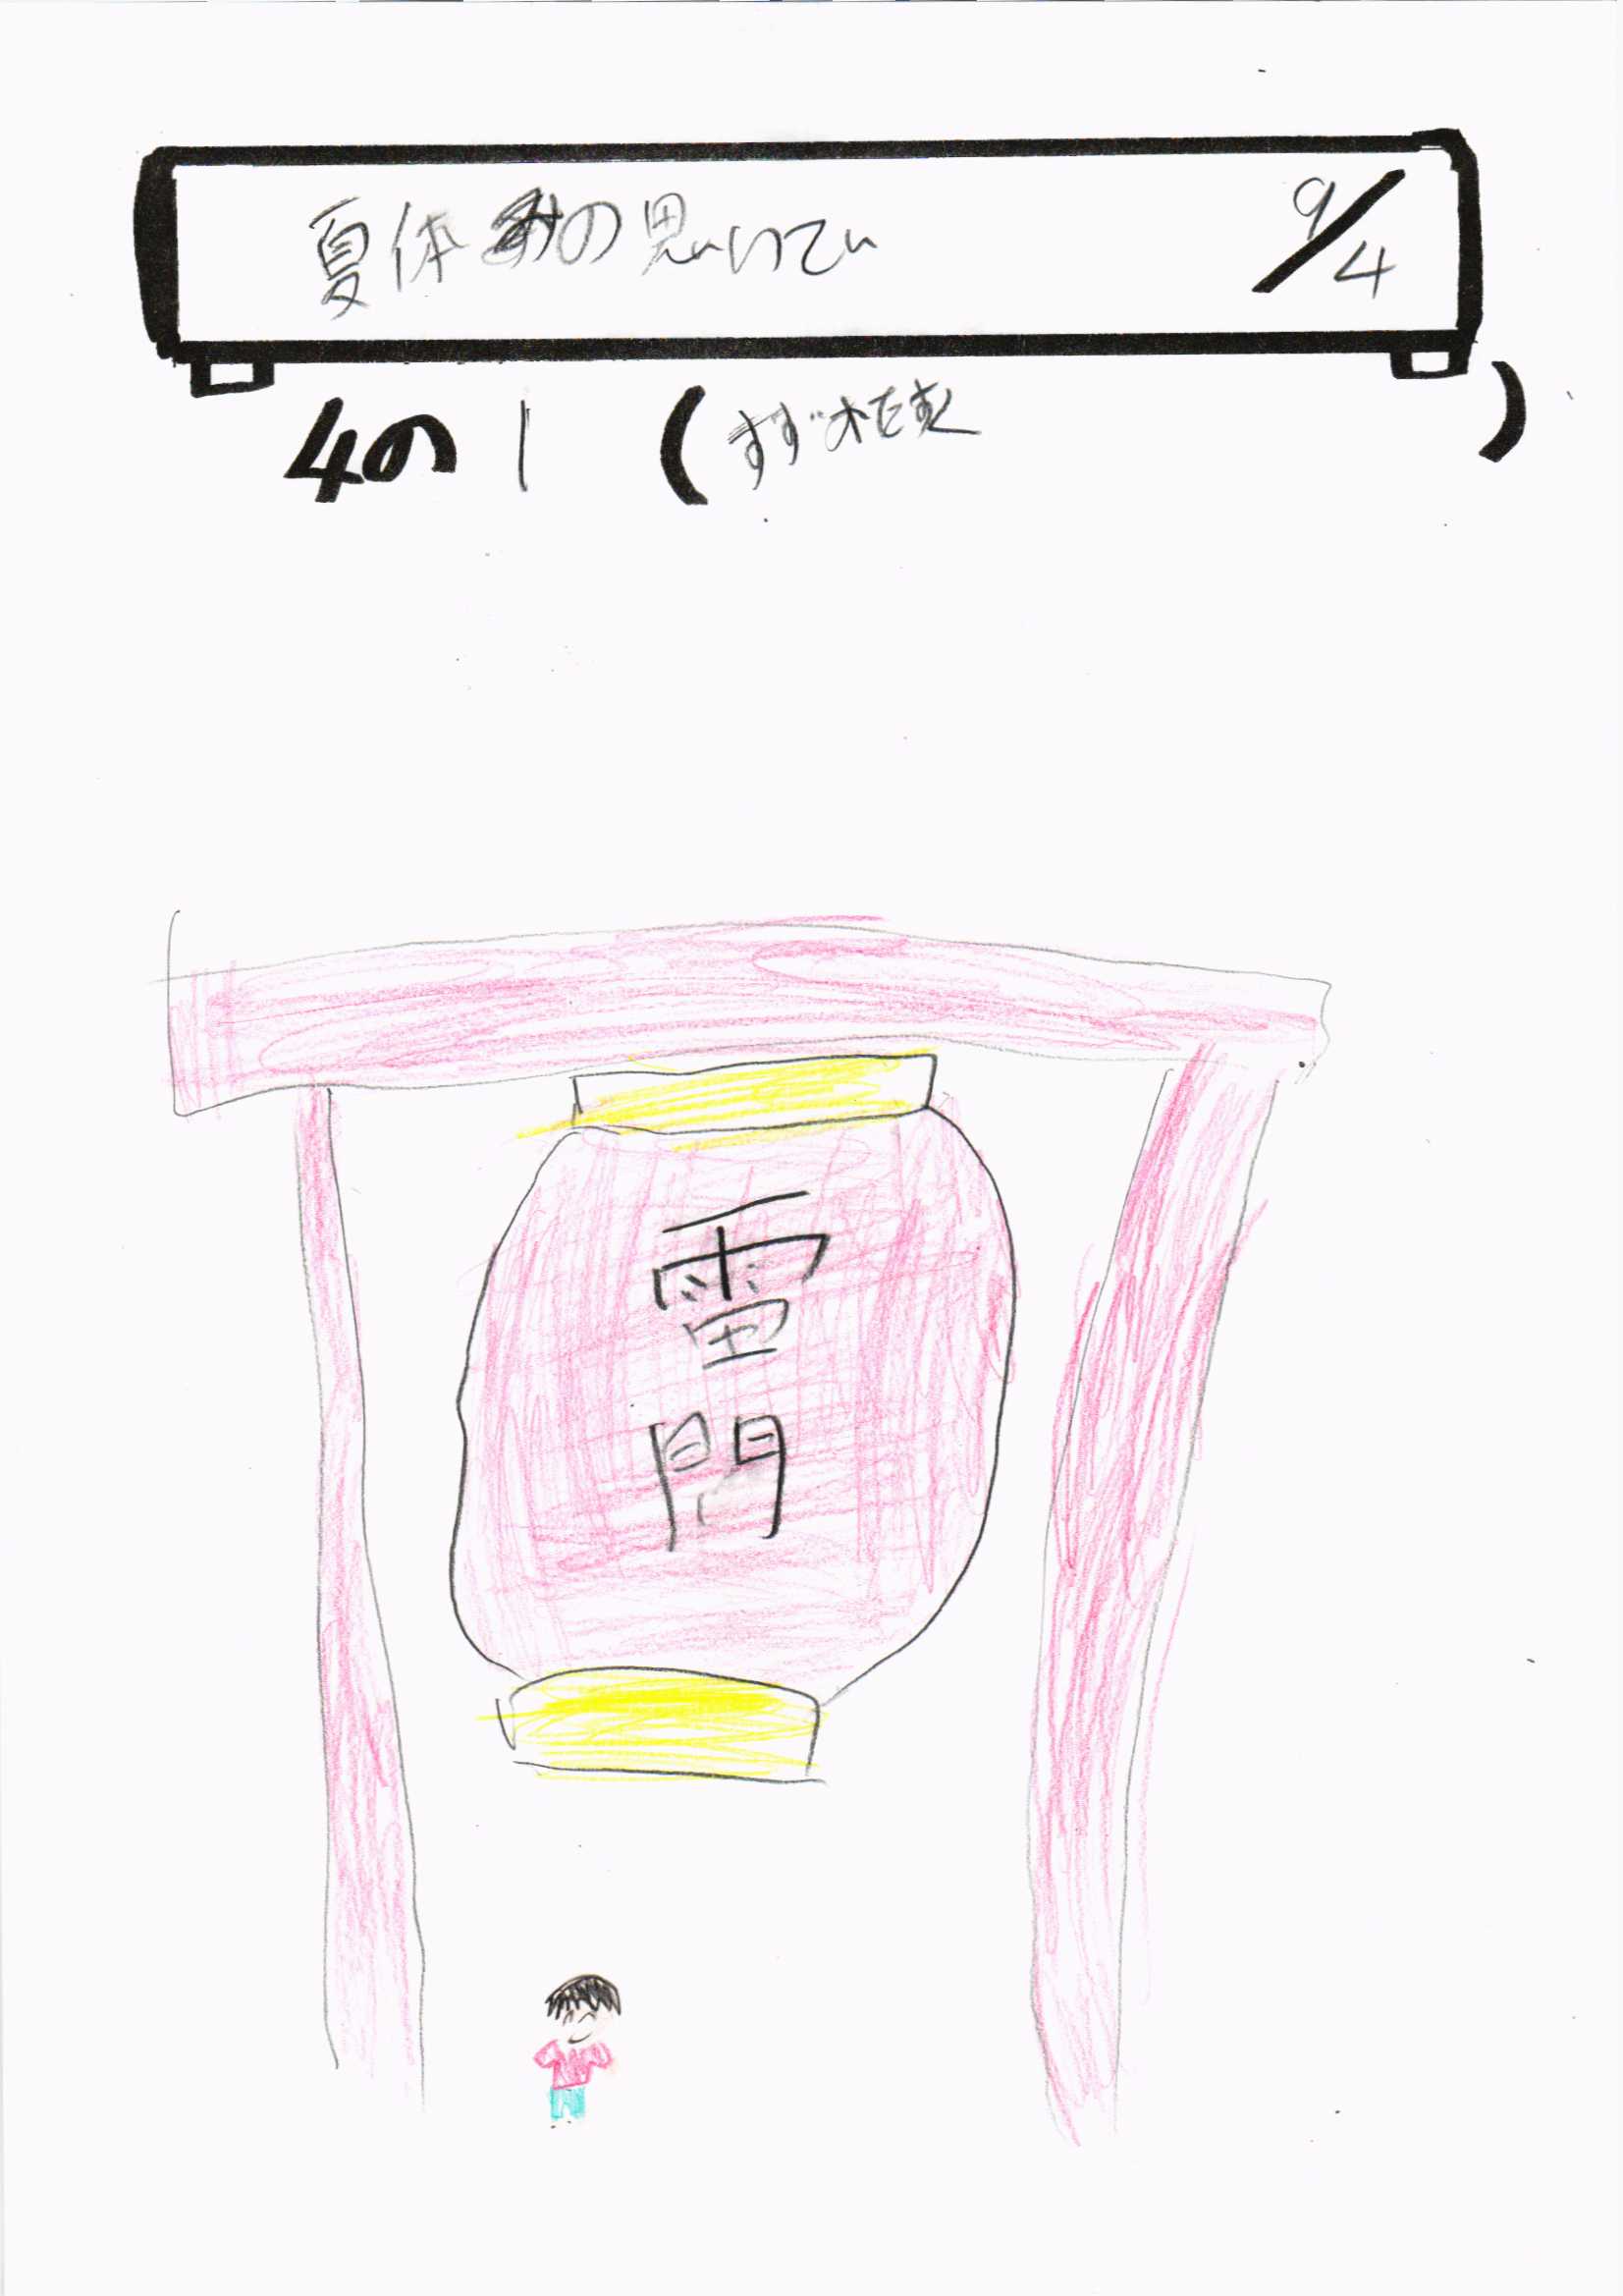 夏休みの思いで 9/4
4の1 (すず木たすく)
雷門